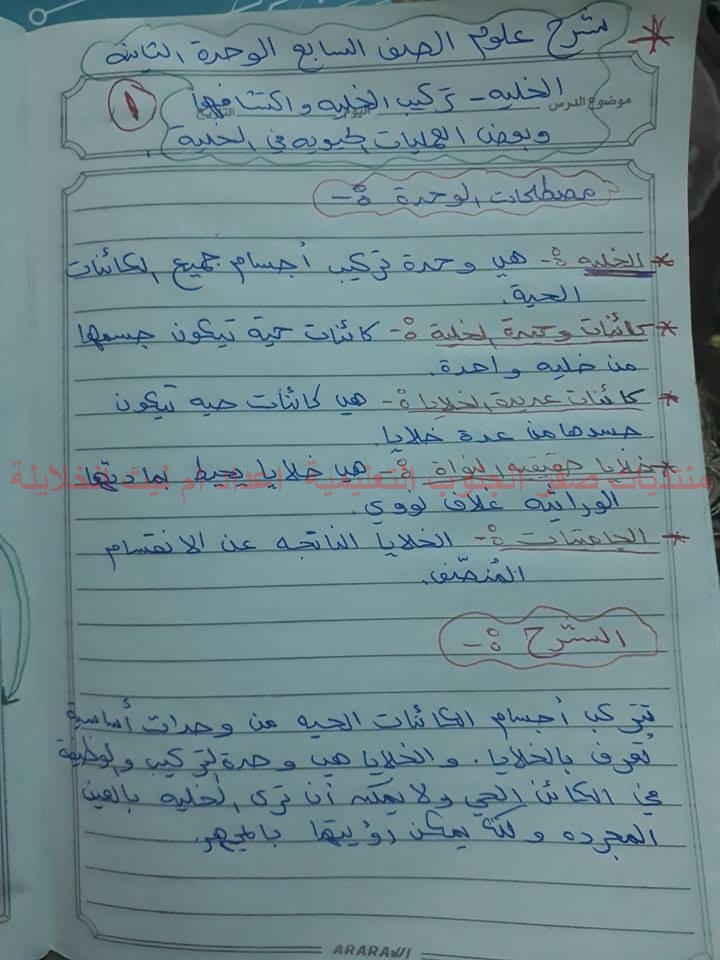 شرح علوم الصف السابع الوحدة الثانية
موضوع الدرس الخليه - تركيب الخليه واكتشافها
١
وبعض العمليات الحيويه في الخلية
مصطلحات الوحدة :-
* الخليه :- هي وحدة تركيب أجسام جميع الكائنات
الحية.
* كائنات وحيدة الخلية :- كائنات حية تيكون جسمها
من خليه واحدة.
* كائنات عديدة الخلايا :- هي كائنات حيه تيكون
جسدها من عدة خلايا.
* خلايا حقيقيه النواة :- هي خلايا يحيط بمادتها
منتديات صقر الجنوب التعليمية اعداد ام ليث الخلايلة
الوراثيه غلاف نووي.
* الجاميتات :- الخلايا الناتجه عن الانقسام
المُنصّف.
الشرح :-
تتركب أجسام الكائنات الحيه من وحدات أساسية
تُعرف بالخلايا. والخلايا هي وحدة التركيب والوظيفة
في الكائن الحي ولا يمكنه أن ترى الخليه بالعين
المجرده ولكنه يمكن رؤيتها بالمجهر.
ARARAWI